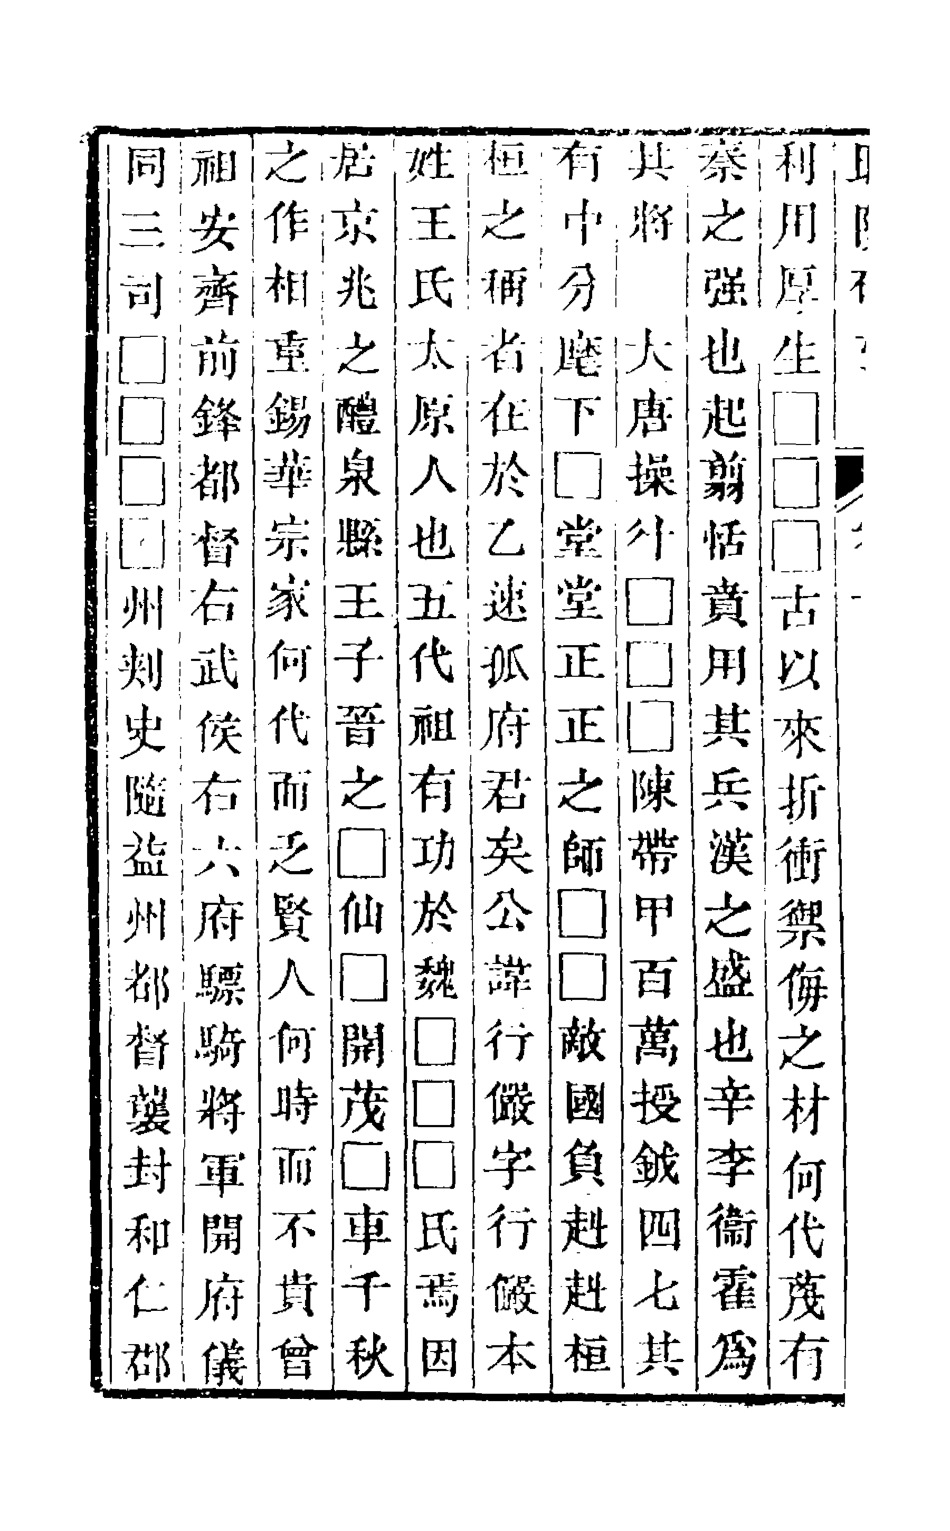 利用厚生□□□古以來折衝禦侮之材何代蔑有
秦之强也起翦恬賁用其兵漢之盛也辛李衞霍爲
其將　大唐操斗□□□陳帶甲百萬授鉞四七其
有中分麾下□堂堂正正之師□□敵國負赳赳桓
桓之稱者在於乙速孤府君矣公諱行儼字行儼本
姓王氏太原人也五代祖有功於魏□□□氏焉因
居京兆之醴泉縣王子晉之□仙□開茂□車千秋
之作相重錫華宗家何代而乏賢人何時而不貴曾
祖安齊前鋒都督右武侯右六府驃騎將軍開府儀
同三司□□□□州刺史隨益州都督襲封和仁郡